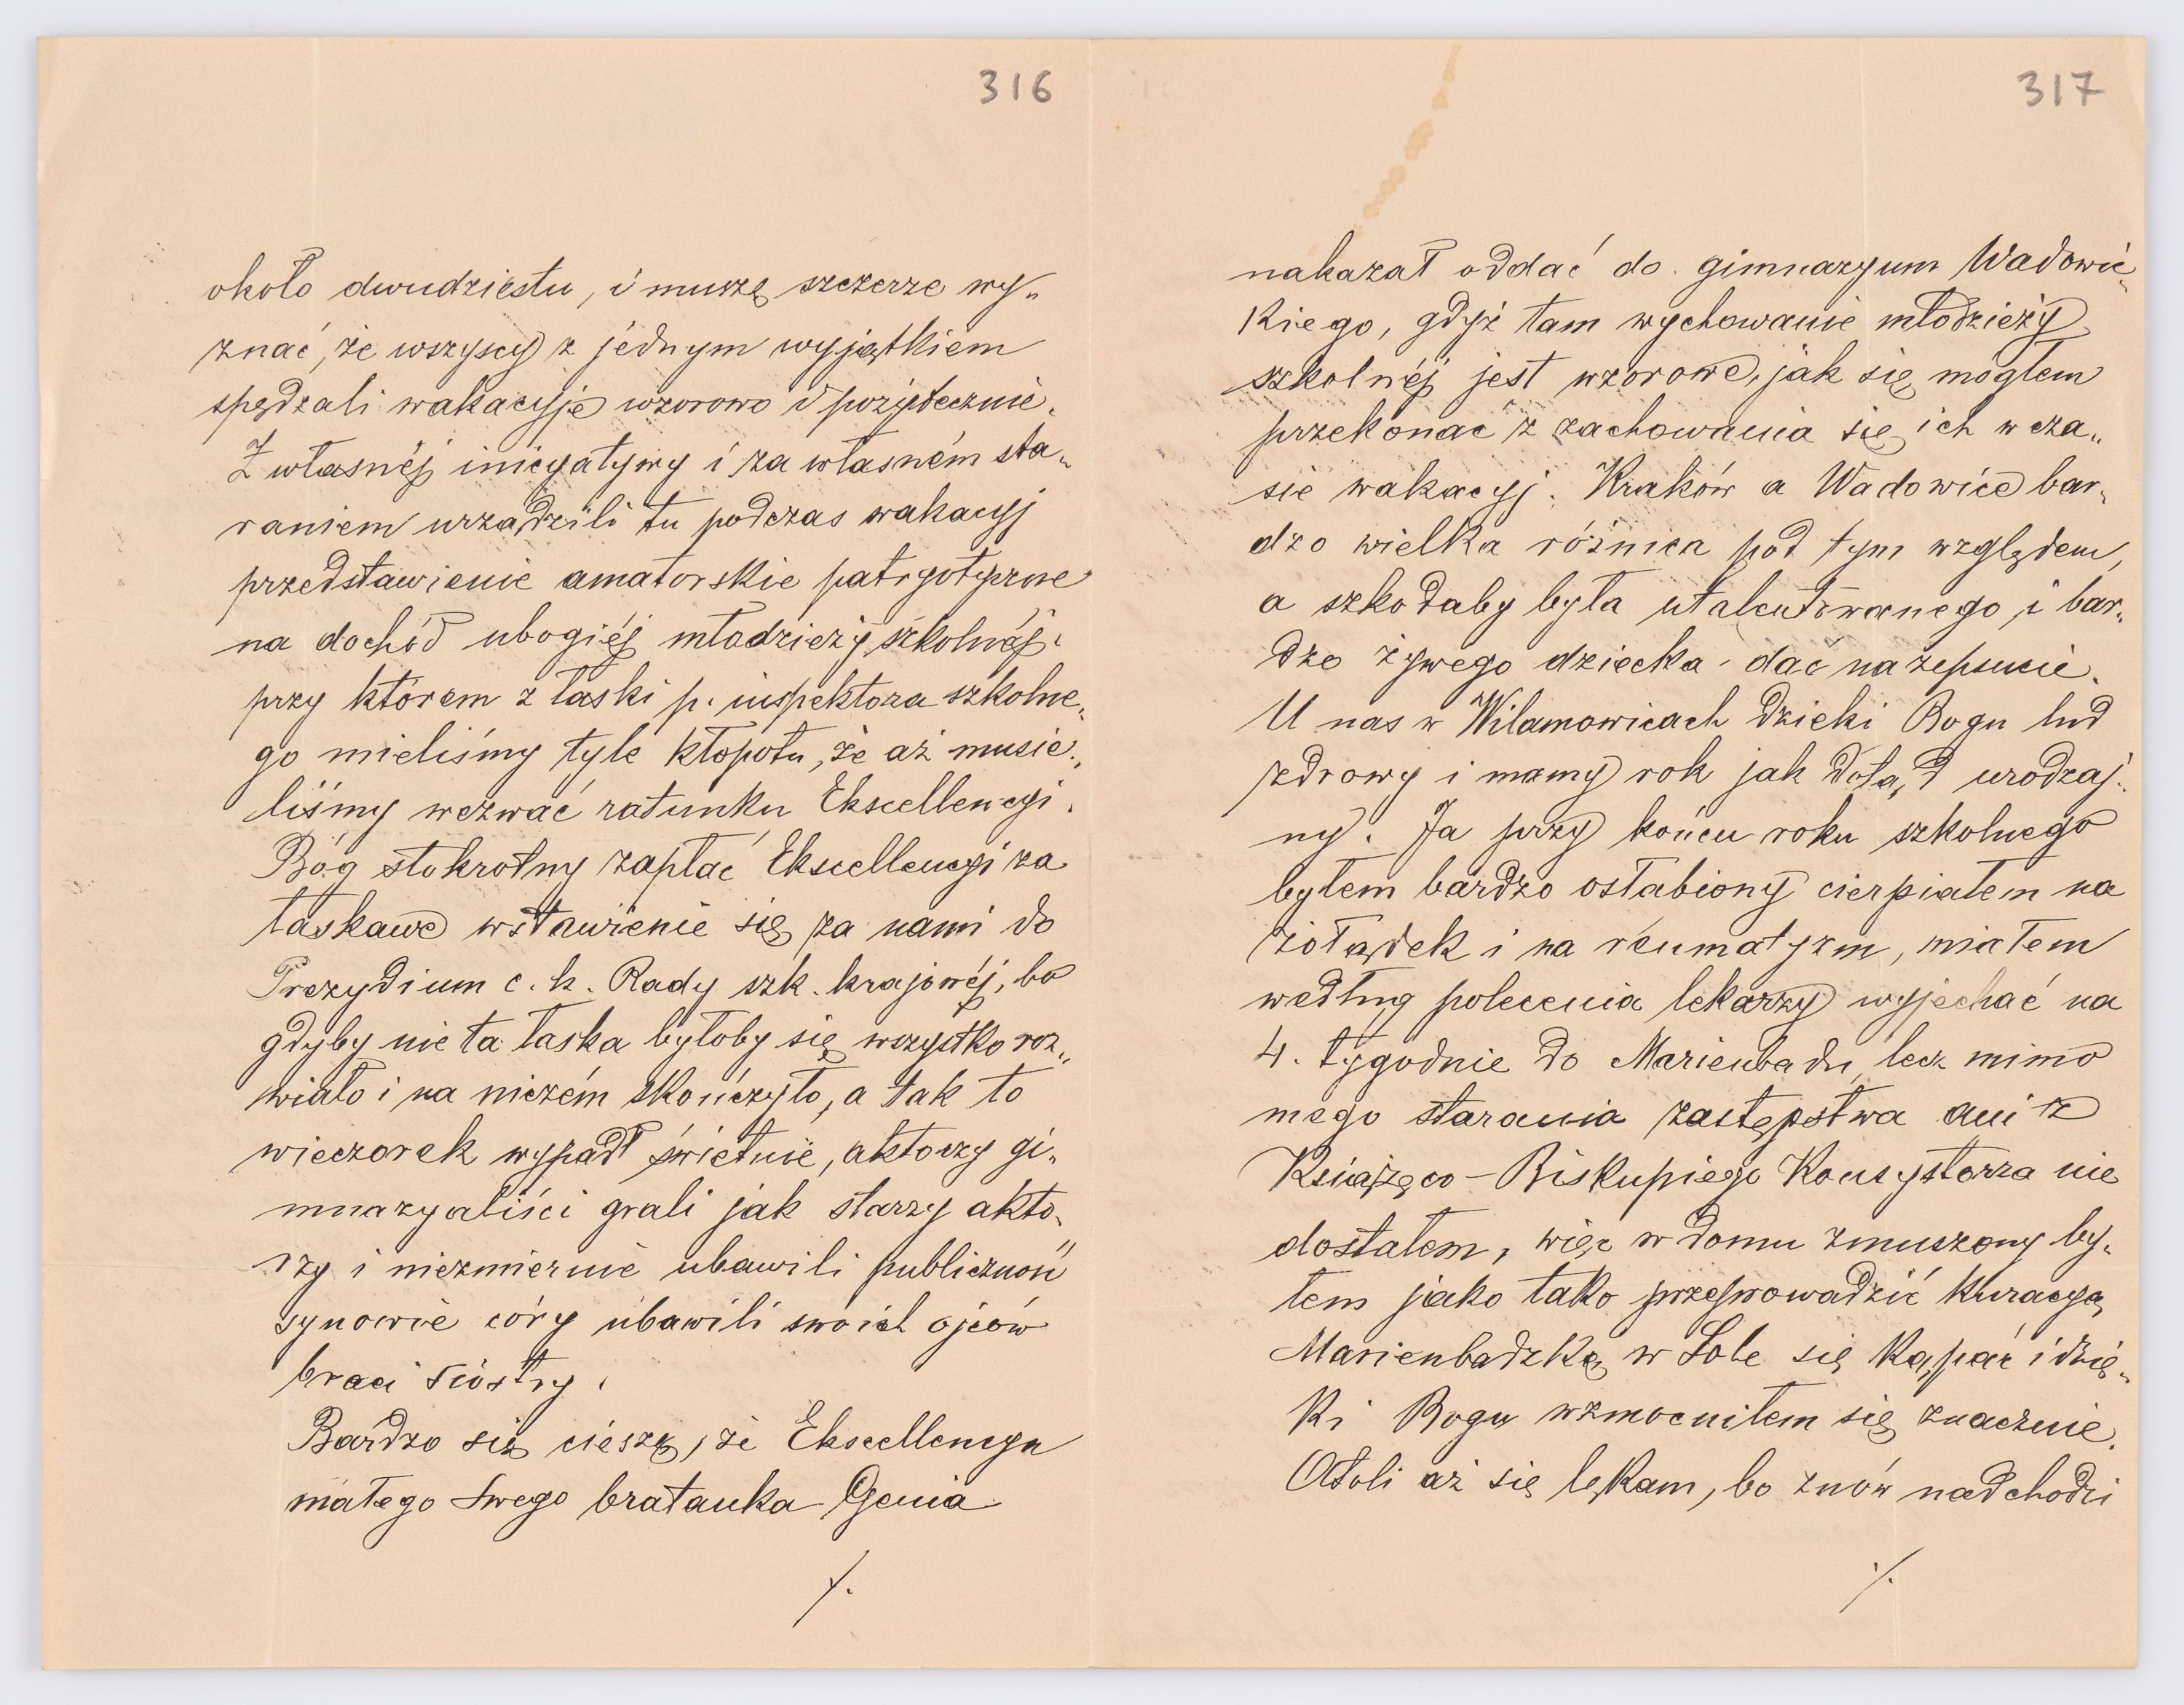 316
około dwudziestu, i muszę szczerze wy„
znać, że wszyscy z jednym wyjątkiem
spędzali wakacyje wzorowo i pożytecznie.
Z własnéj inicyatywy i za własném sta„
raniem urządzili tu podczas wakacyj
przedstawienie amatorskie patryotyczne
na dochód ubogiéj młodzieży szkolnéj.
przy którem z łaski p. inspektora szkolne„
go mieliśmy tyle kłopotu, że aż musie„
liśmy wezwać ratunku Ekscellencyi.
Bóg stokrotny zapłać Ekscellencyi za
łaskawe wstawienie się za nami do
Prezydium c. k. Rady szk. krajowéj, bo
gdyby nie ta łaska byłoby się wszystko roz„
wiało i na niczém skończyło, a tak to
wieczorek wypadł świetnie, aktorzy gi„
mnazyaliści grali jak starzy akto„
rzy i niezmiernie ubawili publiczność
synowie córy ubawili swoich ojców
braci siostry.
Bardzo się cieszę, że Ekscellencya
małego swego bratanka Genia
./.
317
nakazał oddać do gimnazyum Wadowic„
kiego, gdyż tam wychowanie młodzieży
szkolnéj jest wzorowe, jak się mogłem
przekonać z zachowania się ich w cza„
sie wakacyj. Kraków a Wadowice bar„
dzo wielka różnica pod tym względem,
a szkodaby była utalentowanego i bar„
dzo żywego dziecka dać na zepsucie.
U nas w Wilamowicach dzięki Bogu lud
zdrowy i mamy rok jak dotąd urodzaj„
ny. Ja przy końcu roku szkolnego
byłem bardzo osłabiony cierpiałem na
żołądek i na reumatyzm, miałem
według polecenia lekarzy wyjechać na
4. tygodnie do Marienbadu, lecz mimo
mego starania zastępstwa ani z
Książęco-Biskupiego Konsystorza nie
dostałem, więc w domu zmuszony by„
łem jako tako przeprowadzić kuracyę
Marienbadzką w Sole się kąpać i dzię„
ki Bogu wzmocniłem się znacznie.
Atoli aż się lękam, bo znów nadchodzi
./.